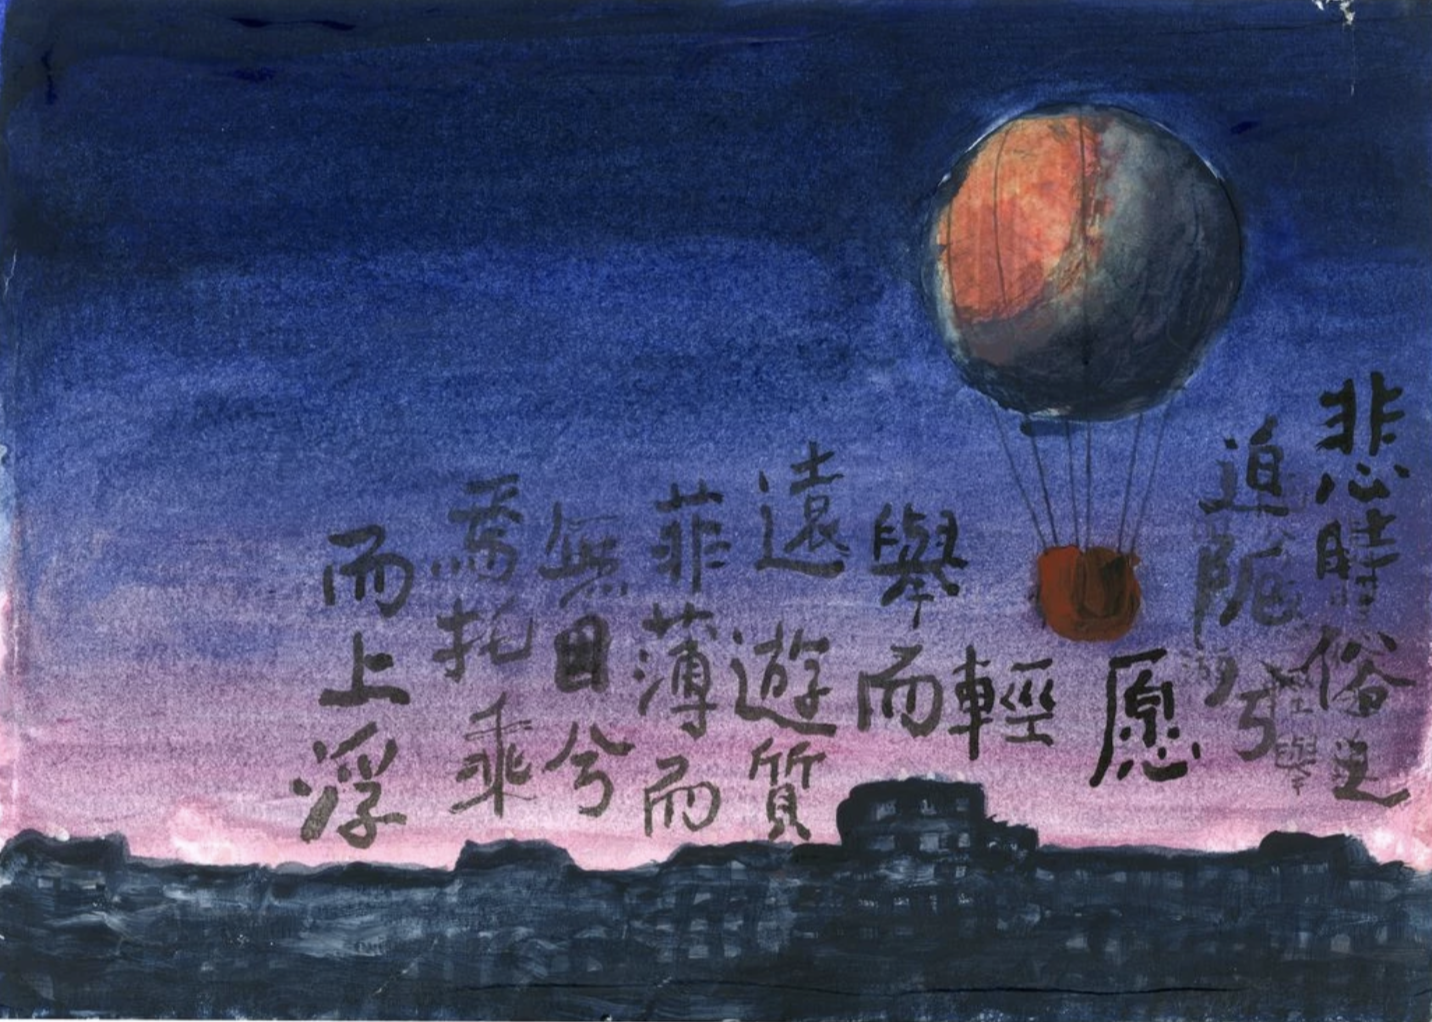 悲時俗
迫阨兮
愿
輕
舉而
遠遊質
菲薄而
無因兮
焉托乘
而上浮